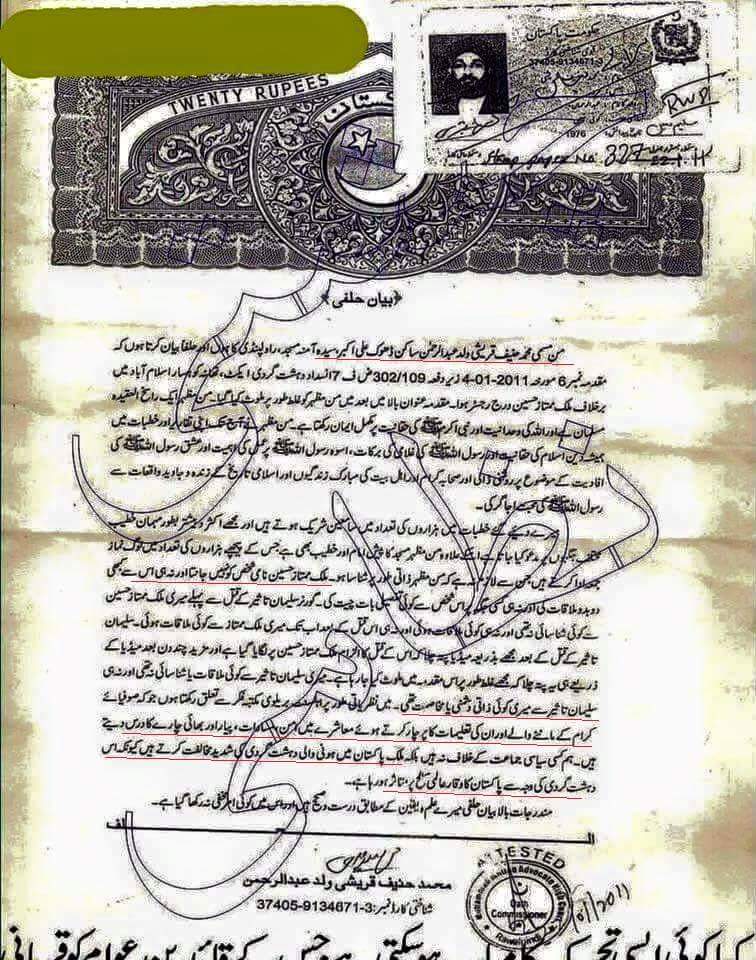 TWENTY RUPEES
پاکستان
حکومت پاکستان
قومی شناختی کارڈ
37405-9134671-3
1976
RWP
Stamp Paper No. 327
﴿بیان حلفی﴾
من مسمی محمد حنیف قریشی ولد عبدالرحمٰن ساکن ڈھوک علی اکبر، سیدہ آمنہ مسجد، راولپنڈی کا ہوں اور حلفاً بیان کرتا ہوں کہ
مقدمہ نمبر 6 مورخہ 2011-01-4 زیر دفعہ 302/109 ض ف 7 انسداد دہشت گردی ایکٹ، تھانہ کوہسار اسلام آباد میں
برخلاف ملک ممتاز حسین درج رجسٹر ہوا۔ مقدمہ عنوان بالا میں بعد میں من مظہر کو غلط طور پر ملوث کیا گیا۔ من مظہر ایک راسخ العقیدہ
مسلمان ہے اور اللہ کی وحدانیت اور نبی اکرم ﷺ کی حقانیت پر مکمل ایمان رکھتا ہے۔ من مظہر نے آج تک اپنی تقاریر اور خطبات میں
ہمیشہ دین اسلام کی حقانیت اور رسول اللہ ﷺ کی غلامی کی برکات، اسوہ رسول اللہ ﷺ پر عمل کی اہمیت اور عشق رسول اللہ ﷺ کی
افادیت کے موضوع پر روشنی ڈالی اور صحابہ کرام اور اہل بیت کی مبارک زندگیوں اور اسلامی تاریخ کے زندہ و جاوید واقعات سے
رسول اللہ ﷺ کی محبت اجاگر کی۔
میرے دیئے گئے خطبات میں ہزاروں کی تعداد میں سامعین شریک ہوتے ہیں اور مجھے اکثر و بیشتر بطور مہمان خطیب
مختلف جگہوں پر مدعو کیا جاتا ہے اسکے علاوہ من مظہر مسجد کا پیش امام اور خطیب بھی ہے جس کے پیچھے ہزاروں کی تعداد میں لوگ نماز
جمعہ ادا کرتے ہیں جن سے لازم نہ ہے کہ من مظہر ذاتی طور پر شناسا ہو۔ ملک ممتاز حسین نامی شخص کو نہیں جانتا اور نہ ہی اس سے کبھی
دوبدو ملاقات کی اور نہ ہی کبھی اس شخص سے کوئی تفصیلی بات چیت کی۔ گورنر سلیمان تاثیر کے قتل سے پہلے میری ملک ممتاز حسین
سے کوئی شناسائی نہ تھی اور نہ ہی کوئی ملاقات ہوئی اور نہ ہی اس قتل کے بعد اب تک میری ملک ممتاز سے کوئی ملاقات ہوئی۔ سلیمان
تاثیر کے قتل کے بعد مجھے بذریعہ میڈیا پتہ چلا کہ اس کے قتل کا الزام ملک ممتاز حسین پر لگایا گیا ہے اور مزید چند دن بعد میڈیا کے
ذریعے ہی یہ پتہ چلا کہ مجھے غلط طور پر اس مقدمہ میں ملوث کیا جا رہا ہے۔ میری سلیمان تاثیر سے کوئی ملاقات یا شناسائی نہ تھی اور نہ ہی
سلیمان تاثیر سے میری کوئی ذاتی دشمنی یا مخاصمت تھی۔ میں نظریاتی طور پر اہلسنت بریلوی مکتبہ فکر سے تعلق رکھتا ہوں جو کہ صوفیائے
کرام کے ماننے والے اور ان کی تعلیمات کا پرچار کرتے ہوئے معاشرے میں امن، مساوات، پیار اور بھائی چارے کا درس دیتے
ہیں۔ ہم کسی سیاسی جماعت کے خلاف نہ ہیں بلکہ ملک پاکستان میں ہونی والی دہشت گردی کی شدید مخالفت کرتے ہیں کیونکہ اس
دہشت گردی کی وجہ سے پاکستان کا وقار عالمی سطح پر متاثر ہو رہا ہے۔
مندرجات بالا بیان حلفی میرے علم و یقین کے مطابق درست و صحیح ہیں اور اس میں کوئی امر مخفی نہ رکھا گیا ہے۔
العـــــبد
محمد حنیف قریشی ولد عبدالرحمن
شناختی کارڈ نمبر: 3-9134671-37405
ATTESTED
Advocate High Court
Oath Commissioner
Rawalpindi